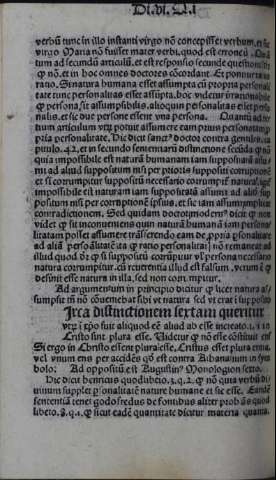 Di.vi. Q.i
verbū tunc in illo instanti virgo nō concepisset verbum, et sic
virgo Maria nō fuisset mater verbi, quod est erroneū. Quā
tum ad secundū articulū, et est responsio secunde questionis
ꝙ nō, et in hoc omnes doctores cōcordant. Et ponitur una
ratio. Si natura humana esset assumpta cū propria personali
tate tunc personalitas esset assumpta. hoc videtur irrationabile
ꝙ persona sit assumpsibilis. aliogum personalitas esset perso
nalis, et sic due persone essent vna persona. Quantū ad ter
tium articulum vtꝝ potuit assumere eam prius personatam pro
pria personalitate. Dic dicit sanct⁹ doctor contra gentiles. ca
pitulo.42. et in secundo sententiarū distinctione secūda ꝙ nō
quia impossibile est naturā humanam iam suppositatā assu
mi ad aliud suppositum nisi per prioris suppositi corruptionē
et si corrumpitur suppositū necessario corrumpit̄ natura. igit̄
impossibile est naturam iam suppositatā assumi ad aliud sup
positum nisi per corruptionē ipsius, et sic iam assumi implicat
contradictionem. Sed quidam doctor modern⁹ dicit ꝙ non
videt̄ ꝙ sit inconueniens quin naturā humanā iam persona
litatam posset assumere trāsferendo eam de ꝓpria ꝑsonalitate
ad aliā ꝑsonalitatē ita ꝙ ratio personalitatis non remaneat ad
illud quod dr̄ ꝙ si suppositū corrumpitur vel persona necessario
natura corrumpitur, cū reuerentia illud est falsum, verum ē ꝙ
desinit esse natura in illa, sed non corrumpitur.
Ad argumentum in principio dicitur ꝙ licet natura as
sumpsit nō nō cōueniebat sibi vt natura sed vt erat i supposito
Irca distinctionem sextam queritur
vtꝝ i xp̄o fuit aliquod eē aliud ab esse increato. 1. ꝙ in
Cristo sint plura esse. Videtur ꝙ nō esse cōstituit ens
Si ergo in Christo essent plura esse, Cristus esset plura entia,
vel vnum ens per accidēs qd̄ est contra Athanasium in sym
bolo: Ad oppositū est Augustin⁹ Monologion sexto.
Dic dicit henricus quodlibeto.3.q.2. ꝙ nō quia verbū di
uinum supplet ꝑsonalitatē nature humane et sic esse. Eandē
sententiā tenet godofredus de fontibus aliter prob as quod
libeto.8.q.1. ꝙ sicut eadē quantitate dicitur materia quanta